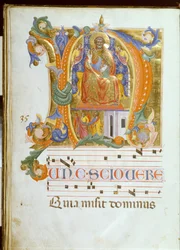 NUNC·SCIOVERE
Quia misit dominus